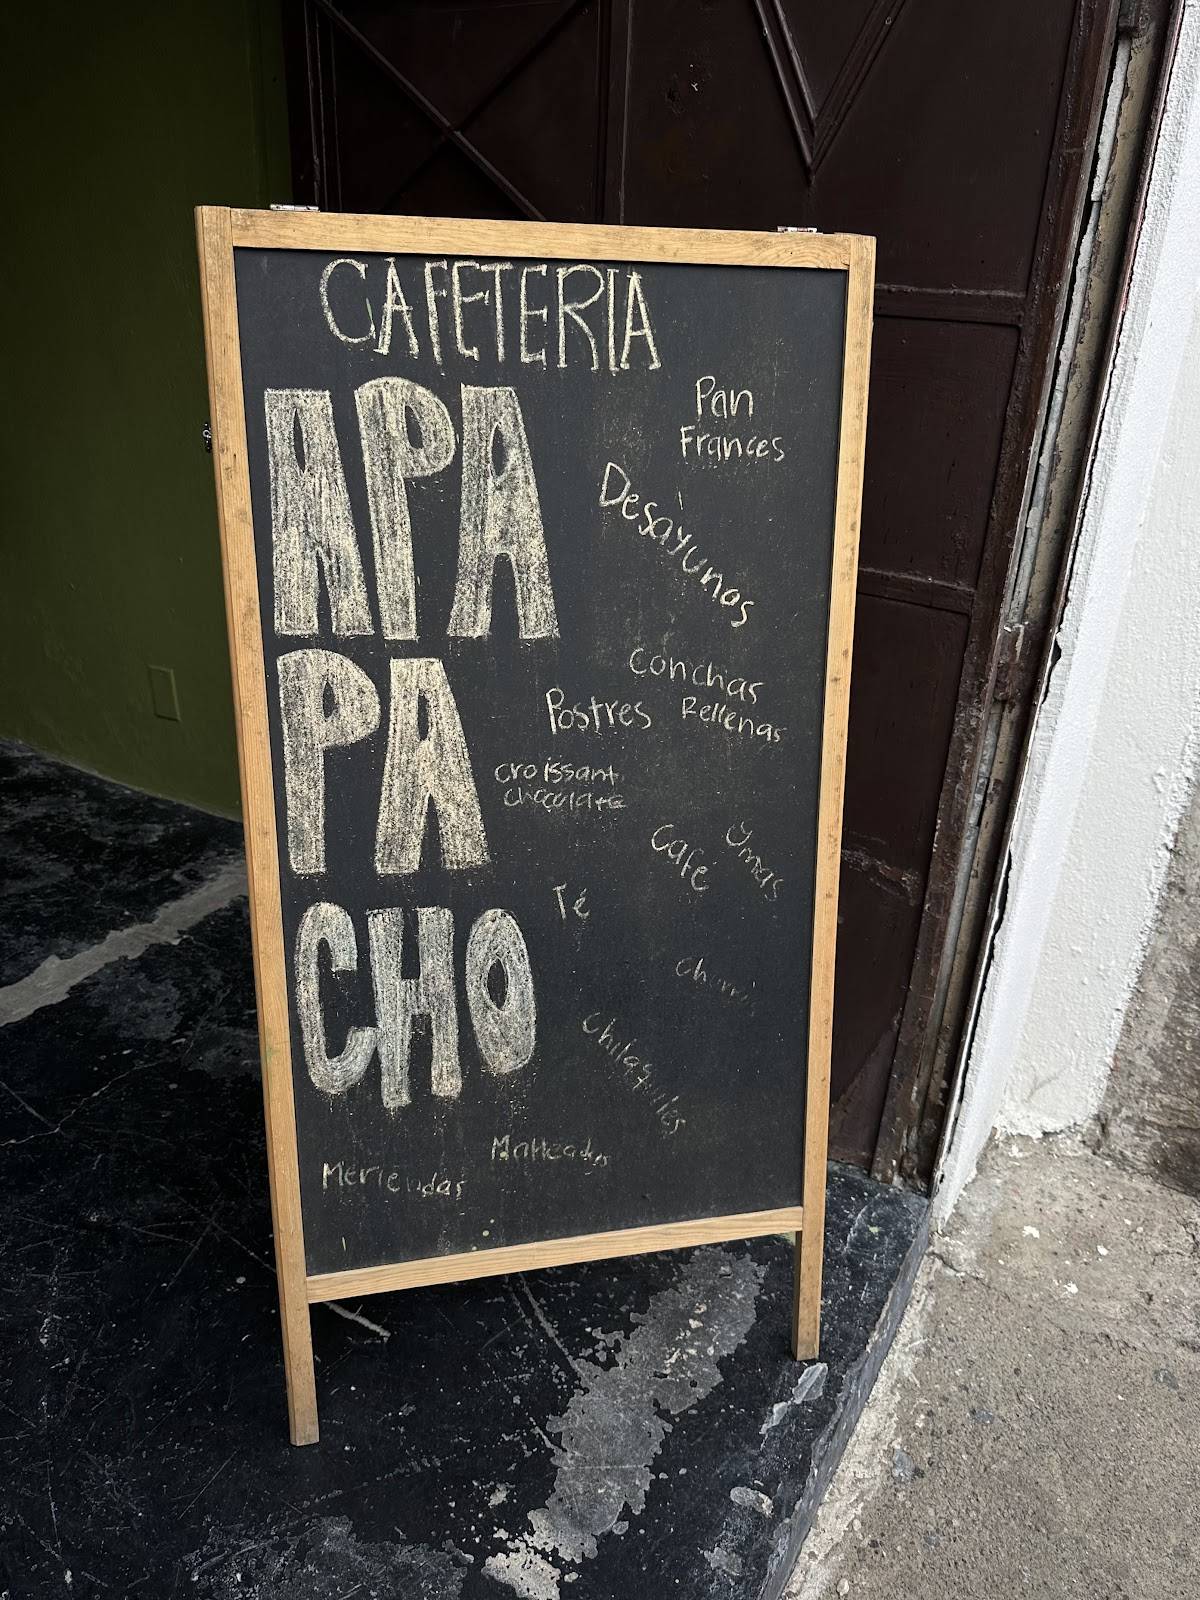 CAFETERIA
APA
PA
CHO
Pan
Frances
Desayunos
Conchas
Rellenas
Postres
croissant
chocolate
Café
Y mas
Té
Chilaquiles
Malteadas
Meriendas